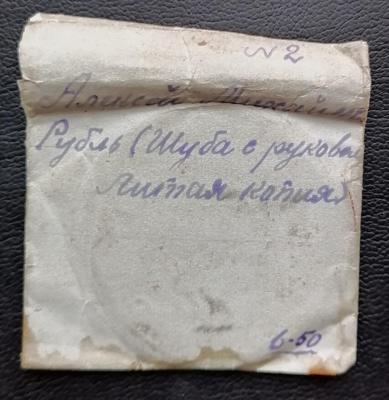 № 2
Алексей Михайл
Рубль (Шуба с рукова
Литая копия)
6-50